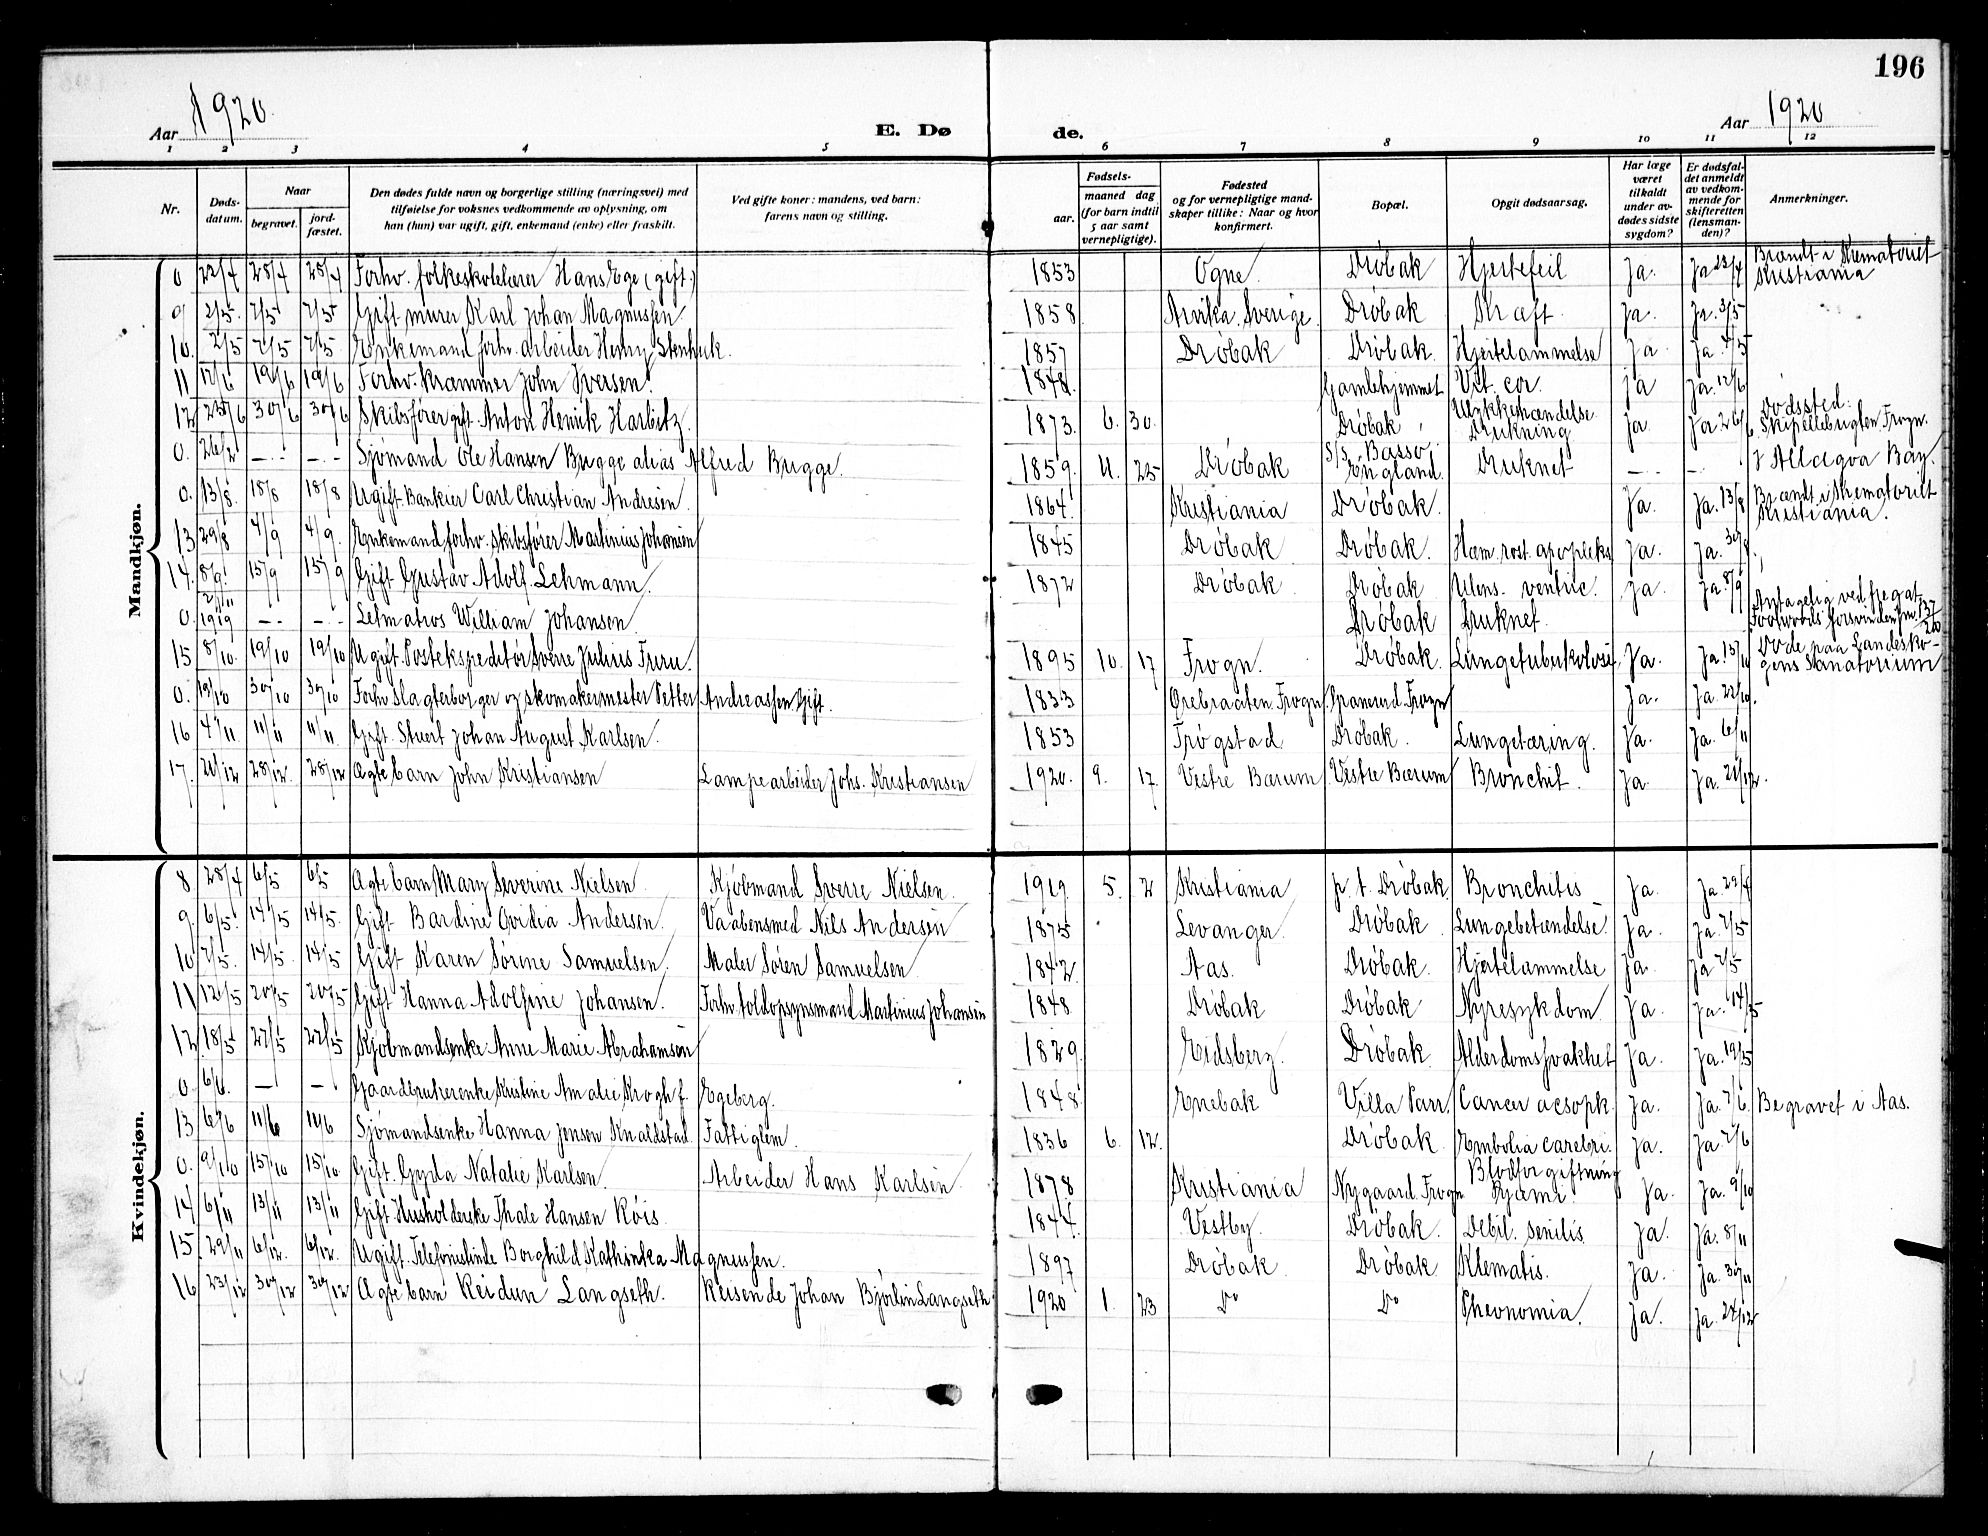 196
Aar 1920. E. Døde. Aar 1920
1 2 3 4 5 6 7 8 9 10 11 12
Nr. | Døds-datum. | Naar begravet. | jord-fæstet. | Den dødes fulde navn og borgerlige stilling (næringsvei) med tilføielse for voksnes vedkommende av oplysning, om han (hun) var ugift, gift, enkemand (enke) eller fraskilt. | Ved gifte koner: mandens, ved barn: farens navn og stilling. | Fødsels- aar. | maaned | dag (for barn indtil 5 aar samt vernepligtige). | Fødested og for vernepligtige mand-skaper tillike: Naar og hvor konfirmert. | Bopæl. | Opgit dødsaarsag. | Har læge været tilkaldt under av-dødes sidste sygdom? | Er dødsfal-det anmeldt av vedkom-mende for skifteretten (lensman-den)? | Anmerkninger.
Mandkjøn.
0 22/4 28/4 28/4 Forhv. folkeskolelærer Hans Ege (gift.) 1853 Ogne. Drøbak Hjertefeil Ja. Ja 23/4 Brændt i Krematoriet Kristiania
9 2/5. 7/5 7/5 Gift murer Karl Johan Magnussen 1858 Arvika Sverige. Drøbak Kræft. Ja. Ja. 3/5
10. 2/5 7/5 7/5 Enkemand forhv. arbeider Henry Stenbuk. 1857 Drøbak Drøbak. Hjertelammelse Ja Ja. 4/5
11 12/6 19/6 19/6 Forhv. Kræmmer John Iversen. 1848. Gamlehjemmet Vit. cor. Ja Ja. 12/6
12 25/6 30/6 30/6 Skibsfører gift. Anton Henrik Harbitz. 1873. 6. 30. Drøbak Ulykkehændelse Drukning Ja Ja 26/6 Dødssted: Skipellebugten Frogn.
0. 26/2 -.- -.- Sjømand Ole Hansen Brygge alias Alfred Brygge. 1859. 11. 25 Drøbak S/S. Basso, England. Druknet -.- -. I Allaqva Bay.
0. 13/8. 18/8 18/8 Ugift Bankier Carl Christian Andresen. 1864. Kristiania Drøbak. Ja. Ja. 13/8 Brændt i Krematoriet Kristiania.
13 29/8 4/9 4/9. Enkemand forhv. Skibsfører Martinius Johansen 1845 Drøbak Drøbak. Hæm. rost. apopleks Ja. Ja. 30/8
14. 8/9. 15/9 15/9 Gift Gustav Adolf Lehmann. 1872 Drøbak. Drøbak Ulens. ventric. Ja. Ja. 8/9
0. 2/11 1919 -.- -.- Letmatros William Johansen. Drøbak Druknet. Antagelig ved fregat Footwoods forsvinden Jnr. 137/20
15 8/10. 19/10 19/10 Ugift. Postekspeditør Sverre Julius Furu. 1895 10. 17 Frogn. Drøbak. Lungetuberkolose. Ja. Ja. 13/10 Døde paa Landesko-gens Sanatorium
0. 19/10 30/10 30/10 Forhv Slagterborger og skomakermester Petter Andreassen Gift. 1833 Ørebraaten Frogn. Spanerud Frogn Ja. Ja. 22/10.
16 4/11 11/11 11/11. Gift. Stuert Johan August Karlsen. 1853 Trøgstad Drøbak. Lungetæring. Ja. Ja. 6/11
17. 21/12 28/12. 28/12 Ægte barn John Kristiansen Lampearbeider Johs. Kristiansen 1920. 9. 17. Vestre Bærum Vestre Bærum Bronchit. Ja. Ja. 21/12.
Kvindekjøn.
8 28/4 6/5 6/5 Ægte barn Mary Severine Nielsen. Kjøbmand Sverre Nielsen. 1919. 5. 2 Kristiania p.t. Drøbak. Bronchitis Ja. Ja. 29/4
9. 6/5. 14/5 14/5. Gift Bardine Ovidia Andersen. Vaabensmed Nils Andersen 1875 Levanger. Drøbak. Lungebetændelse. Ja. Ja. 7/5
10 7/5. 14/5. 14/5 Gift Karen Sørine Samuelsen. Maler Søren Samuelsen. 1842 Aas. Drøbak. Hjertelammelse Ja. Ja 7/5
11 12/5 20/5 20/5 Gift Hanna Adolfine Johansen. Forhv. toldopsynsmand Martinius Johansen 1848 Drøbak Drøbak Nyresykdom. Ja. Ja. 14/5
12. 18/5 22/5 22/5 Kjøbmandsenke Anne Marie Abrahamsen 1829. Eidsberg. Drøbak. Alderdomssvakhet Ja. Ja. 19/5
0. 6/6. — — Gaardbrukerenke Kristine Amalie Krogh f. Egeberg. 1848. Enebak Villa Parr. Cancer aesopk. Ja. Ja. 7/6. Begravet i Aas.
13 6/6 11/6 11/6 Sjømandsenke Hanna Jensen Knaldstad. Fattiglem. 1836 6. 12. Drøbak. Embolia carebri. Ja. Ja 7/6
0. 9/10 15/10 15/10. Gift. Gyda Natalie Karlsen. Arbeider Hans Karlsen. 1878 Kristiania Nygaard Frogn Blodforgiftning Pyæmi. Ja. Ja. 9/10
14 6/11 13/11 13/11 Gift. Husholderske Thale Hansen Røis. 1844. Vestby. Drøbak. Debil. senilis. Ja. Ja. 8/11
15. 29/11 6/12. 6/12. Ugift. Telefonistinde Borghild Kathinka Magnussen. 1897 Drøbak. Drøbak. Klematis. Ja. Ja. 30/11
16 23/12 30/12 30/12 Ægte barn Reidun Langseth. Reisende Johan Bjørlin Langseth 1920 1. 23 Do Do Pnevnomia. Ja. Ja. 24/12